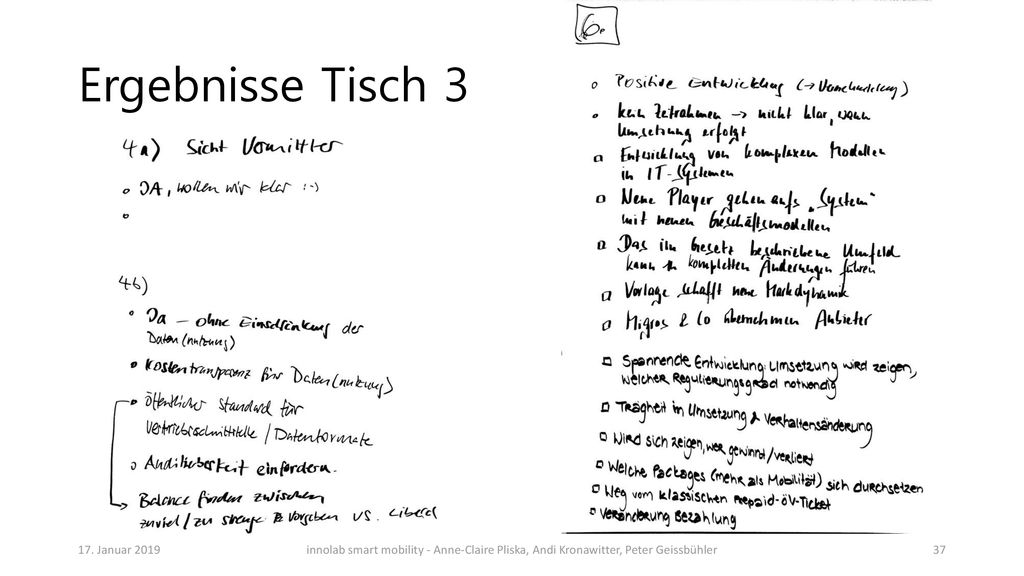 Ergebnisse Tisch 3
4a) Sicht Vermittler
JA, wollen wir klar :-)
4b)
Ja – ohne Einschränkung der
Daten(nutzung)
Kostentransparenz für Daten(nutzung)
öffentlicher Standard für
Vertriebsschnittstelle / Datenformate
Auditierbarkeit einfordern.
Balance finden zwischen
zuviel / zu strenge Vorgaben vs. liberal
6.
Positive Entwicklung (→ Vernehmlassung)
kein Zeitrahmen → nicht klar, wann
Umsetzung erfolgt
Entwicklung von komplexen Modellen
in IT-Systemen
Neue Player gehen aufs „System“
mit neuen Geschäftsmodellen
Das im Gesetz beschriebene Umfeld
kann zu kompletten Änderungen führen
Vorlage schafft neue Markdynamik
Migros & Co übernehmen Anbieter
Spannende Entwicklung: Umsetzung wird zeigen,
welcher Regulierungsgrad notwendig
Trägheit in Umsetzung & Verhaltensänderung
Wird sich zeigen, wer gewinnt/verliert
Welche Packages (mehr als Mobilität) sich durchsetzen
Weg vom klassischen Prepaid-öV-Ticket
Veränderung Bezahlung
17. Januar 2019
innolab smart mobility - Anne-Claire Pliska, Andi Kronawitter, Peter Geissbühler
37